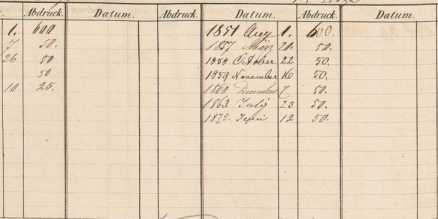 Abdruck. Datum. Abdruck. Datum. Abdruck. Datum.
1. 600 1851 Aug. 1. 600.
7 50. 1857 März 21. 50.
26 50 1858 October 22. 50.
50 1859 November 16 50.
10 25. 1860 December 7. 50.
1863 July 23. 50.
12 50.